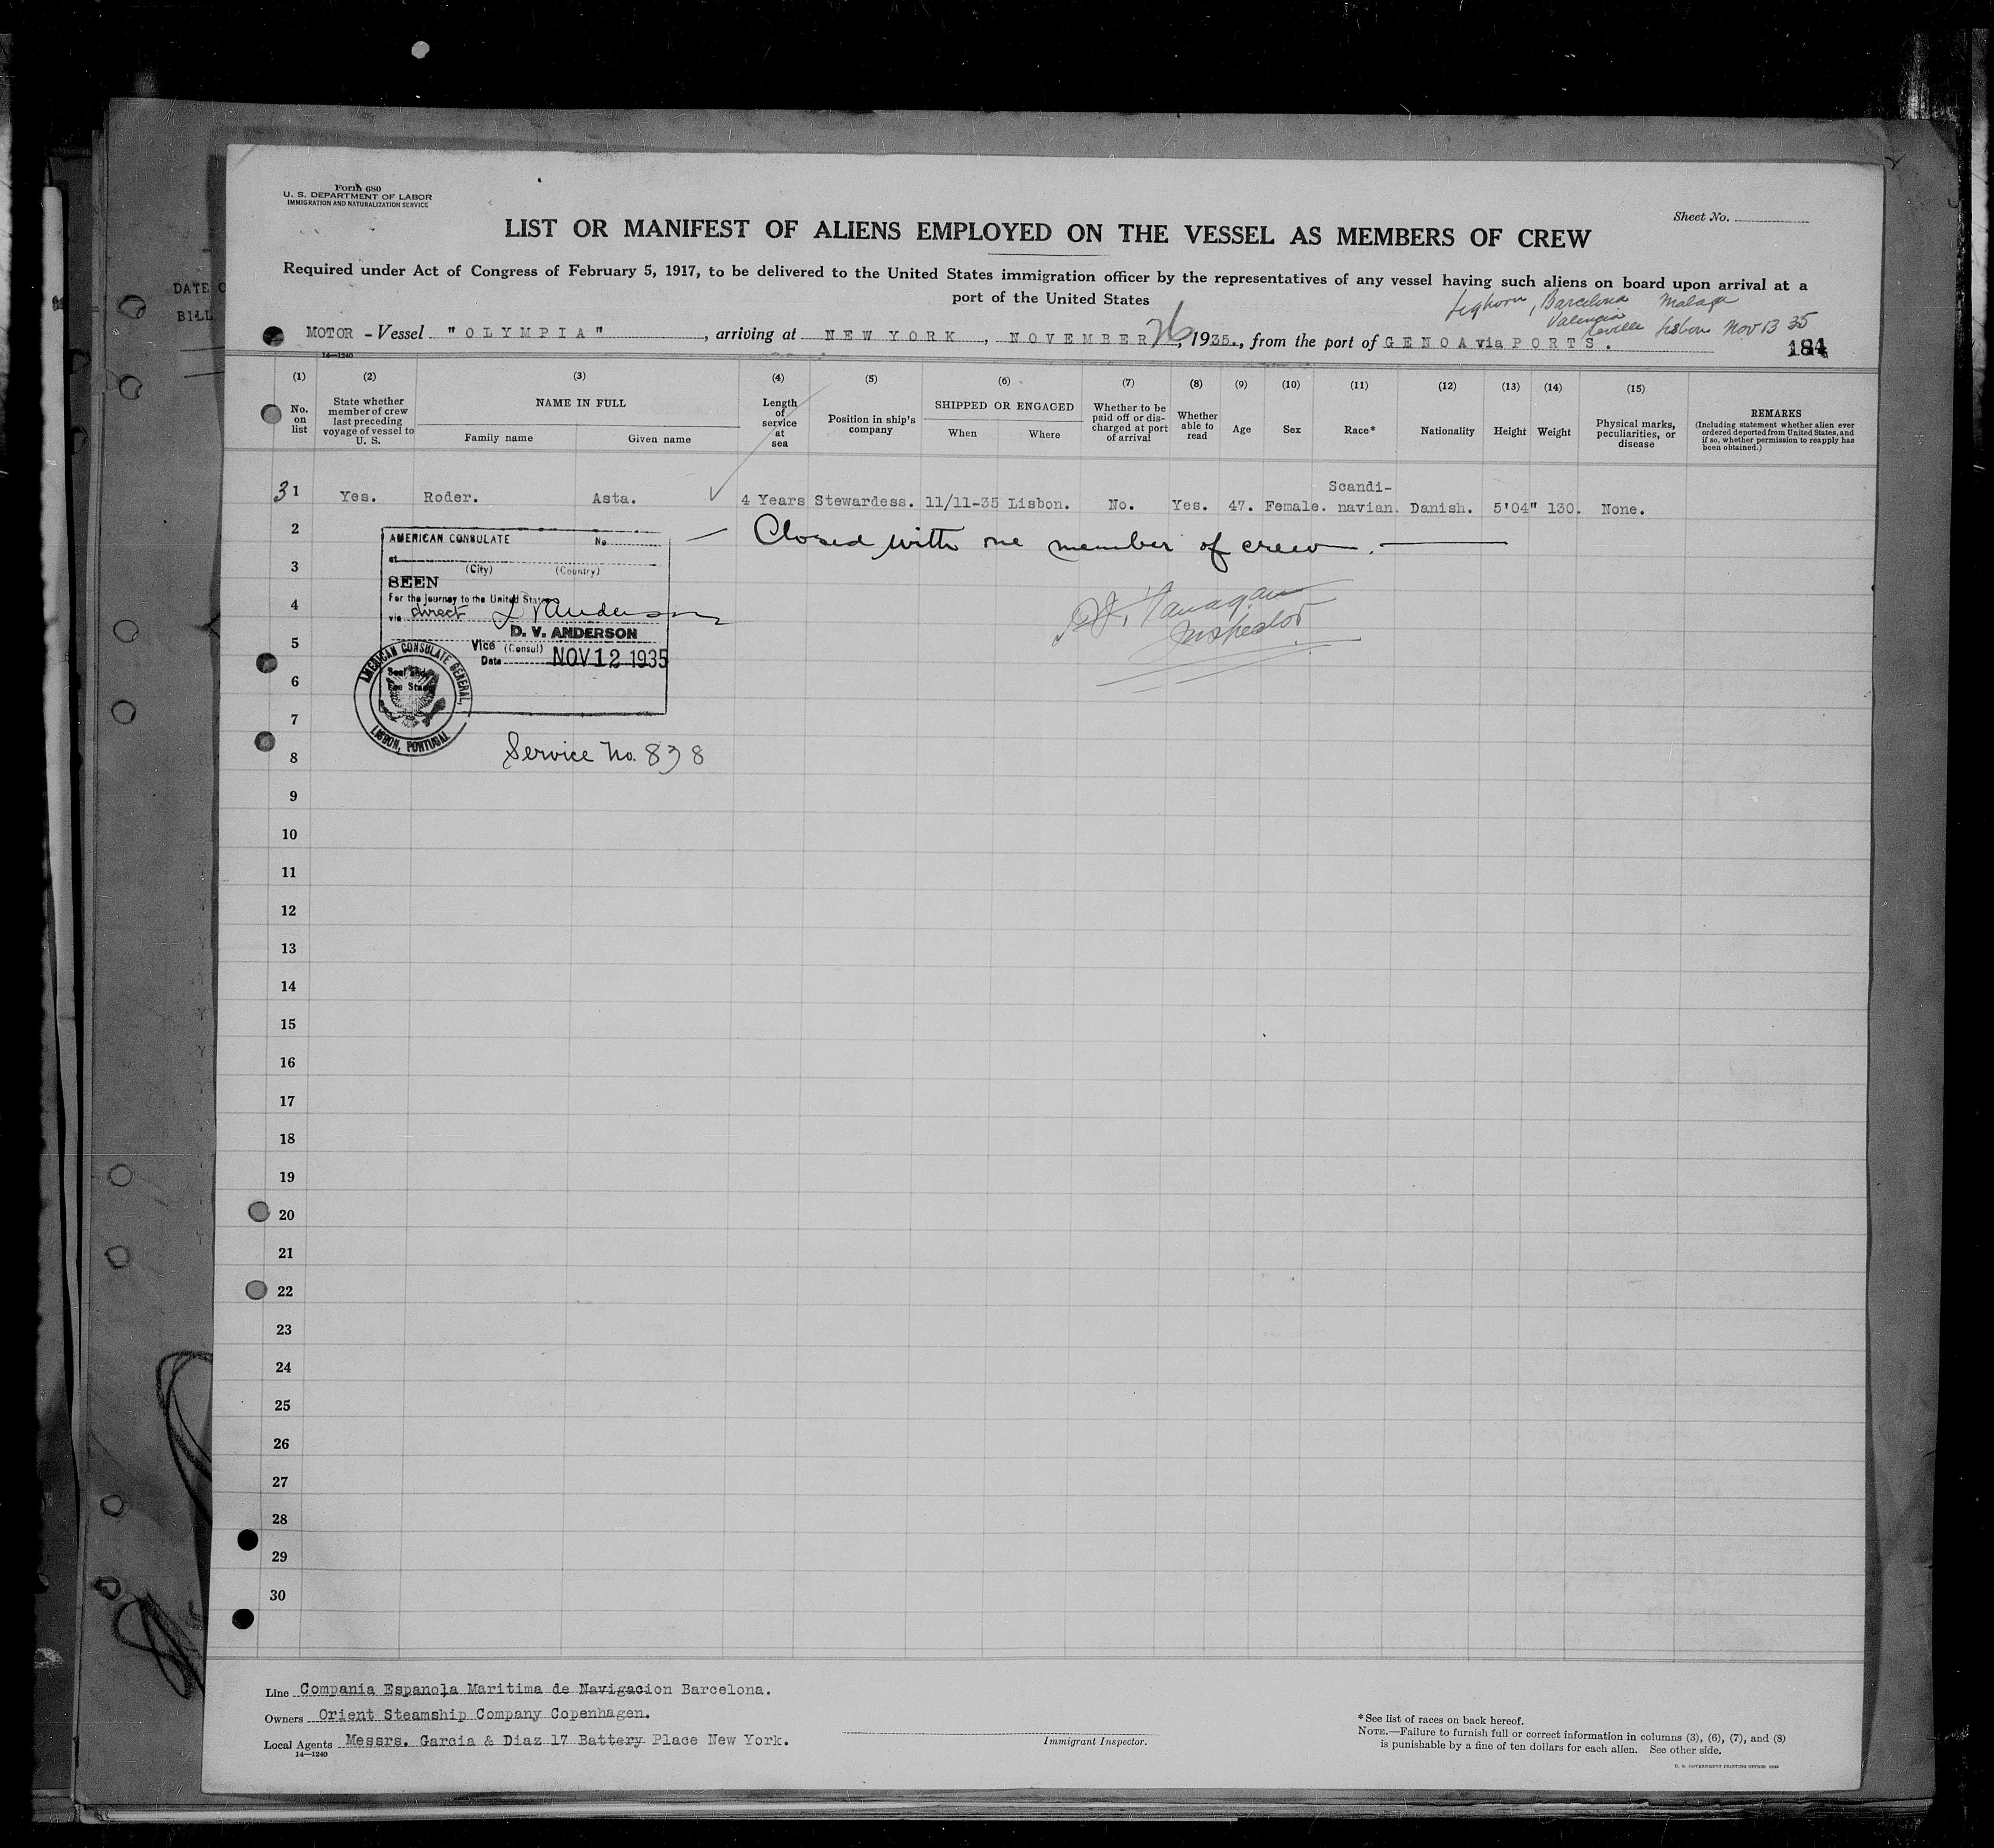 Form 680
U. S. DEPARTMENT OF LABOR
IMMIGRATION AND NATURALIZATION SERVICE
Sheet No.
LIST OR MANIFEST OF ALIENS EMPLOYED ON THE VESSEL AS MEMBERS OF CREW
Required under Act of Congress of February 5, 1917, to be delivered to the United States immigration officer by the representatives of any vessel having such aliens on board upon arrival at a
port of the United States
Leghorn, Barcelona Malaga
Valencia
Seville Lisbon Nov 13 35
MOTOR - Vessel "OLYMPIA", arriving at NEW YORK, NOVEMBER 26, 1935., from the port of GENOA via PORTS.
184
14—1240
(1) (2) (3) (4) (5) (6) (7) (8) (9) (10) (11) (12) (13) (14) (15)
No. on list
State whether member of crew last preceding voyage of vessel to U. S.
NAME IN FULL
Family name
Given name
Length of service at sea
Position in ship's company
SHIPPED OR ENGAGED
When
Where
Whether to be paid off or discharged at port of arrival
Whether able to read
Age
Sex
Race*
Nationality
Height
Weight
Physical marks, peculiarities, or disease
REMARKS
(Including statement whether alien ever ordered deported from United States, and if so, whether permission to reapply has been obtained.)
31 Yes. Roder. Asta. 4 Years Stewardess. 11/11-35 Lisbon. No. Yes. 47. Female. Scandi-navian. Danish. 5'04" 130. None.
2 — Closed with one member of crew. —
AMERICAN CONSULATE No.
at
(City) (Country)
SEEN
For the journey to the United States
via direct D V Anderson
D. V. ANDERSON
Vice (Consul)
Date NOV 12 1935
Seal and
Fee Stamp
AMERICAN CONSULATE GENERAL,
LISBON, PORTUGAL
Inspector
Service No. 838
3
4
5
6
7
8
9
10
11
12
13
14
15
16
17
18
19
20
21
22
23
24
25
26
27
28
29
30
Line Compania Espanola Maritima de Navigacion Barcelona.
Owners Orient Steamship Company Copenhagen.
Local Agents Messrs. Garcia & Diaz 17 Battery Place New York.
14—1240
Immigrant Inspector.
*See list of races on back hereof.
NOTE.—Failure to furnish full or correct information in columns (3), (6), (7), and (8)
is punishable by a fine of ten dollars for each alien. See other side.
DATE
BILL